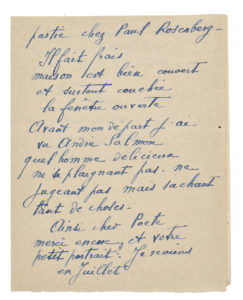 partie chez Paul Rosenberg –
Il fait frais
maison est bien couvert
et surtout couchée
la fenêtre ouverte
Avant mon départ j'ai
vu André Salmon
quel homme délicieux
ne se plaignant pas. ne
jugeant pas mais sachant
tant de choses –
Ainsi cher Poete
merci encore, et votre
petit portrait. Je reviens
en Juillet